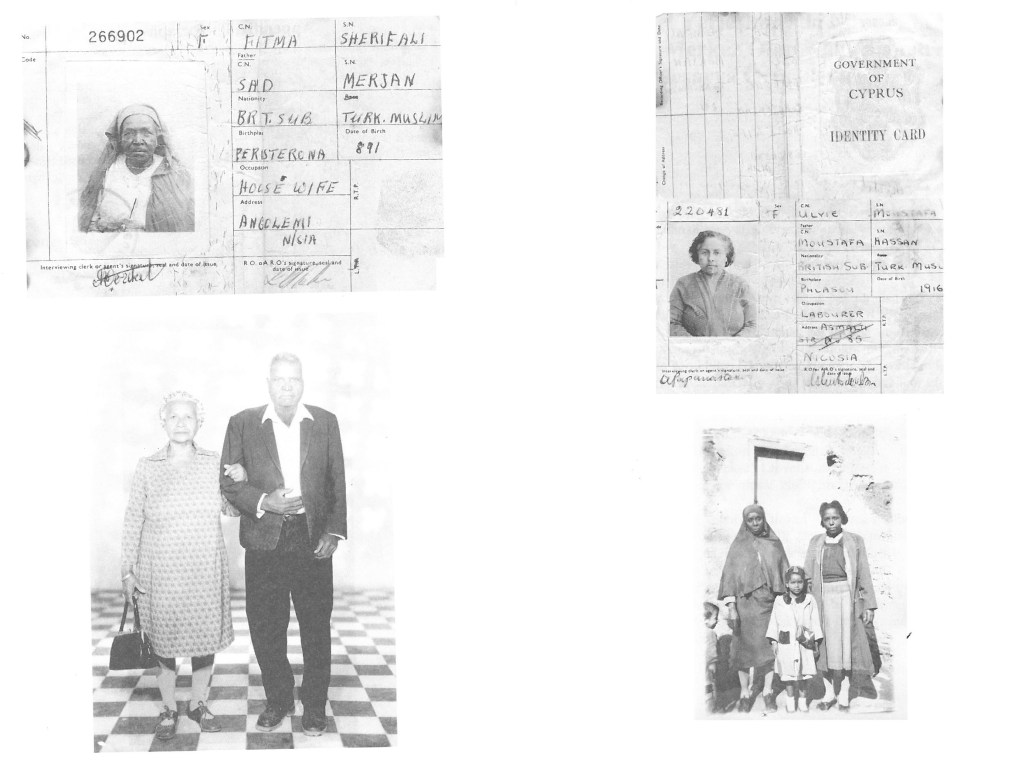 No. 266902 Sex F C.N. FITMA S.N. SHERIFALI
Code
Father
C.N. SAID S.N. MERJAN
Nationality BRT. SUB Race TURK. MUSLIM
Birthplace PERISTERONA Date of Birth 891
Occupation
HOUSE WIFE
Address
ANGOLEMI
N/SIA
R.T.P.
L.T.P.
Interviewing clerk or agent's signature, seal and date of issue.
R.O. or A.R.O's signature, seal and date of issue
GOVERNMENT
OF
CYPRUS
IDENTITY CARD
Change of Address
220481 Sex F C.N. ULVIE S.N. MOUSTAFA
Father
C.N. MOUSTAFA S.N. HASSAN
Nationality BRITISH SUB. Race TURK MUSL
Birthplace Date of Birth 1916
Occupation
LABOURER
Address ASMALI
NICOSIA
R.T.P.
L.T.P.
Interviewing clerk or agent's signature, seal and date of issue.
R.O. or A.R.O's signature, seal and date of issue